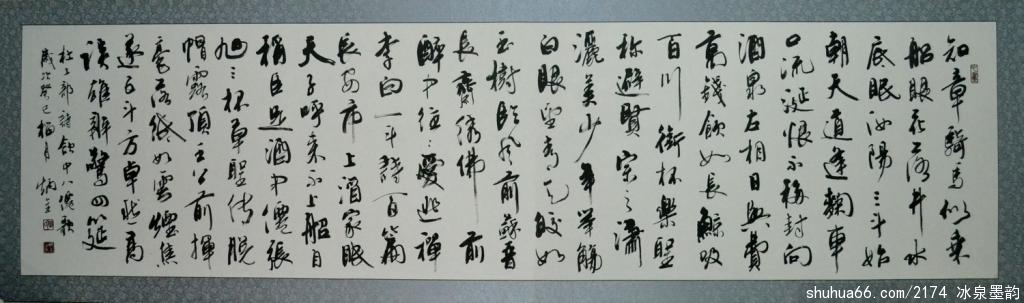 知章騎馬似乘
船眼花落井水
底眠汝陽三斗始
朝天道逢麴車
口流涎恨不移封向
酒泉左相日興費
萬錢飲如長鯨吸
百川銜杯樂聖
称避賢宗之瀟
灑美少年舉觴
白眼望青天皎如
玉樹臨風前蘇晋
長齋绣佛前
醉中往々愛逃禪
李白一斗詩百篇
長安市上酒家眠
天子呼来不上船自
稱臣是酒中僊張
旭三杯草聖傳脱
帽露頂王公前揮
毫落紙如雲煙焦
遂五斗方卓然高
談雄辯驚四筵
杜工部詩飲中八僊歌
歲次癸巳梅月炳
shuhua66.com/2174 冰泉墨韵